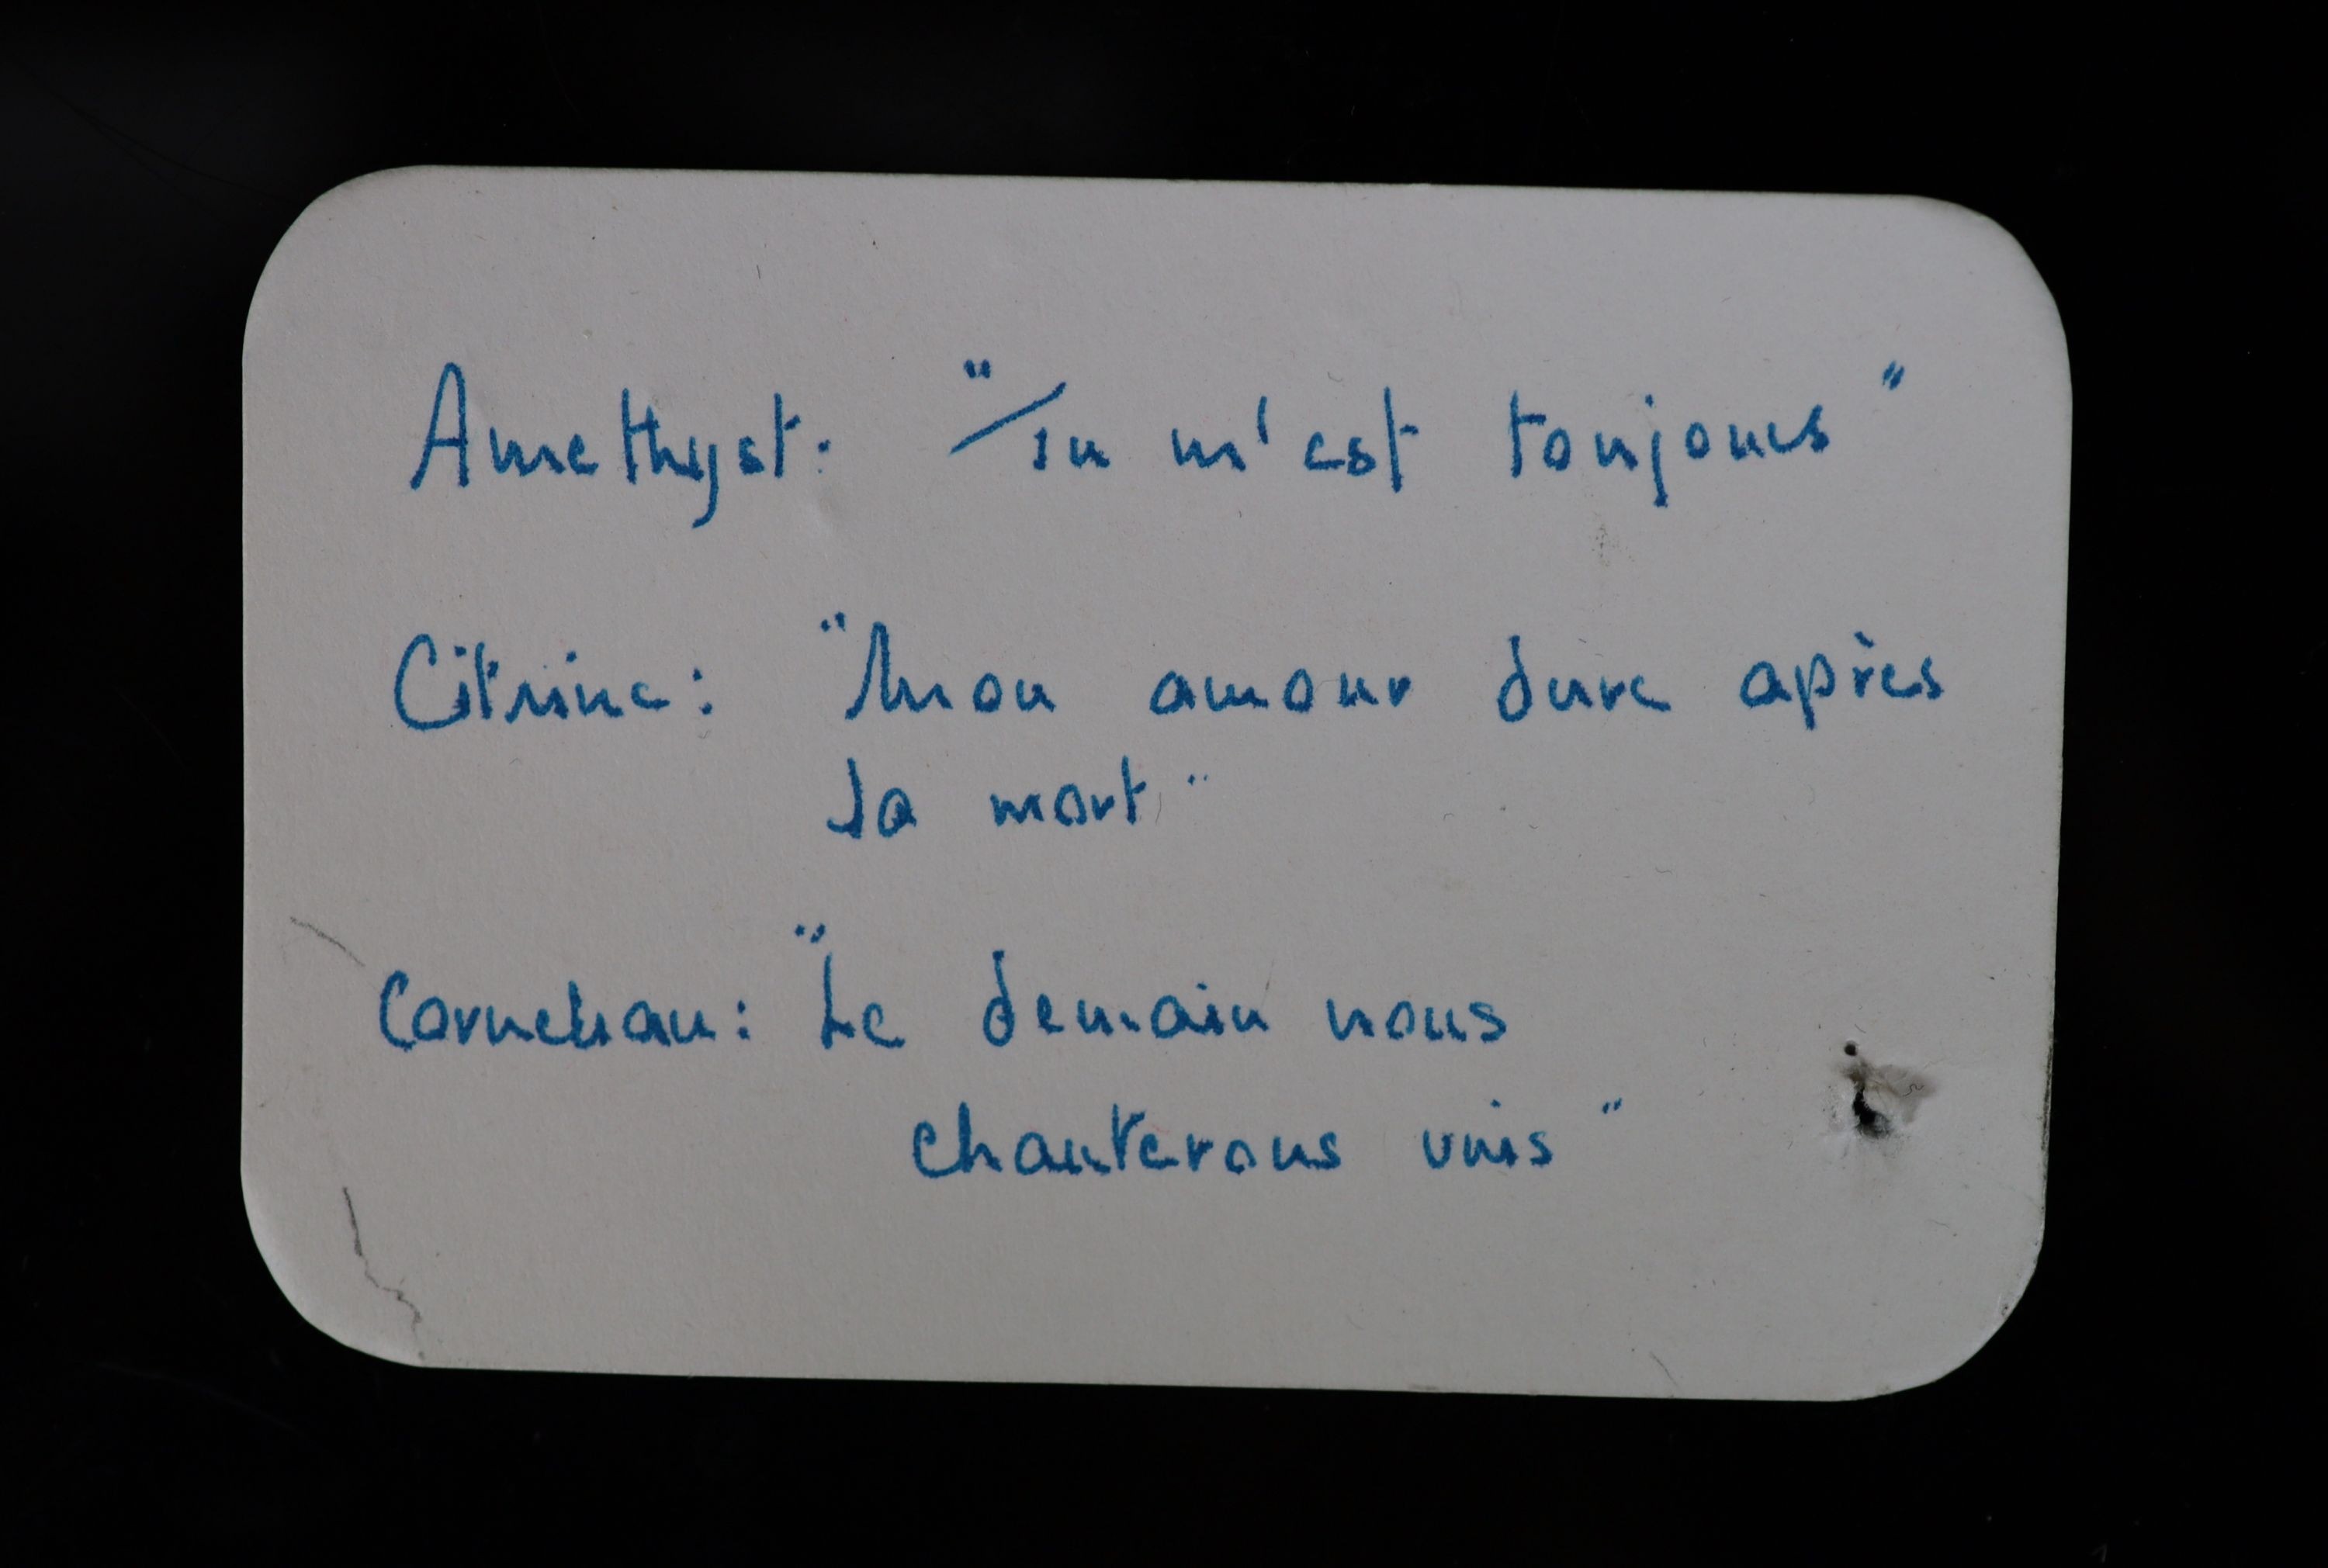 Amethyst: "Tu m'est toujours"
Citrine: "Mon amour dure après
la mort"
Cornelian: "Le demain nous
chanterons unis"